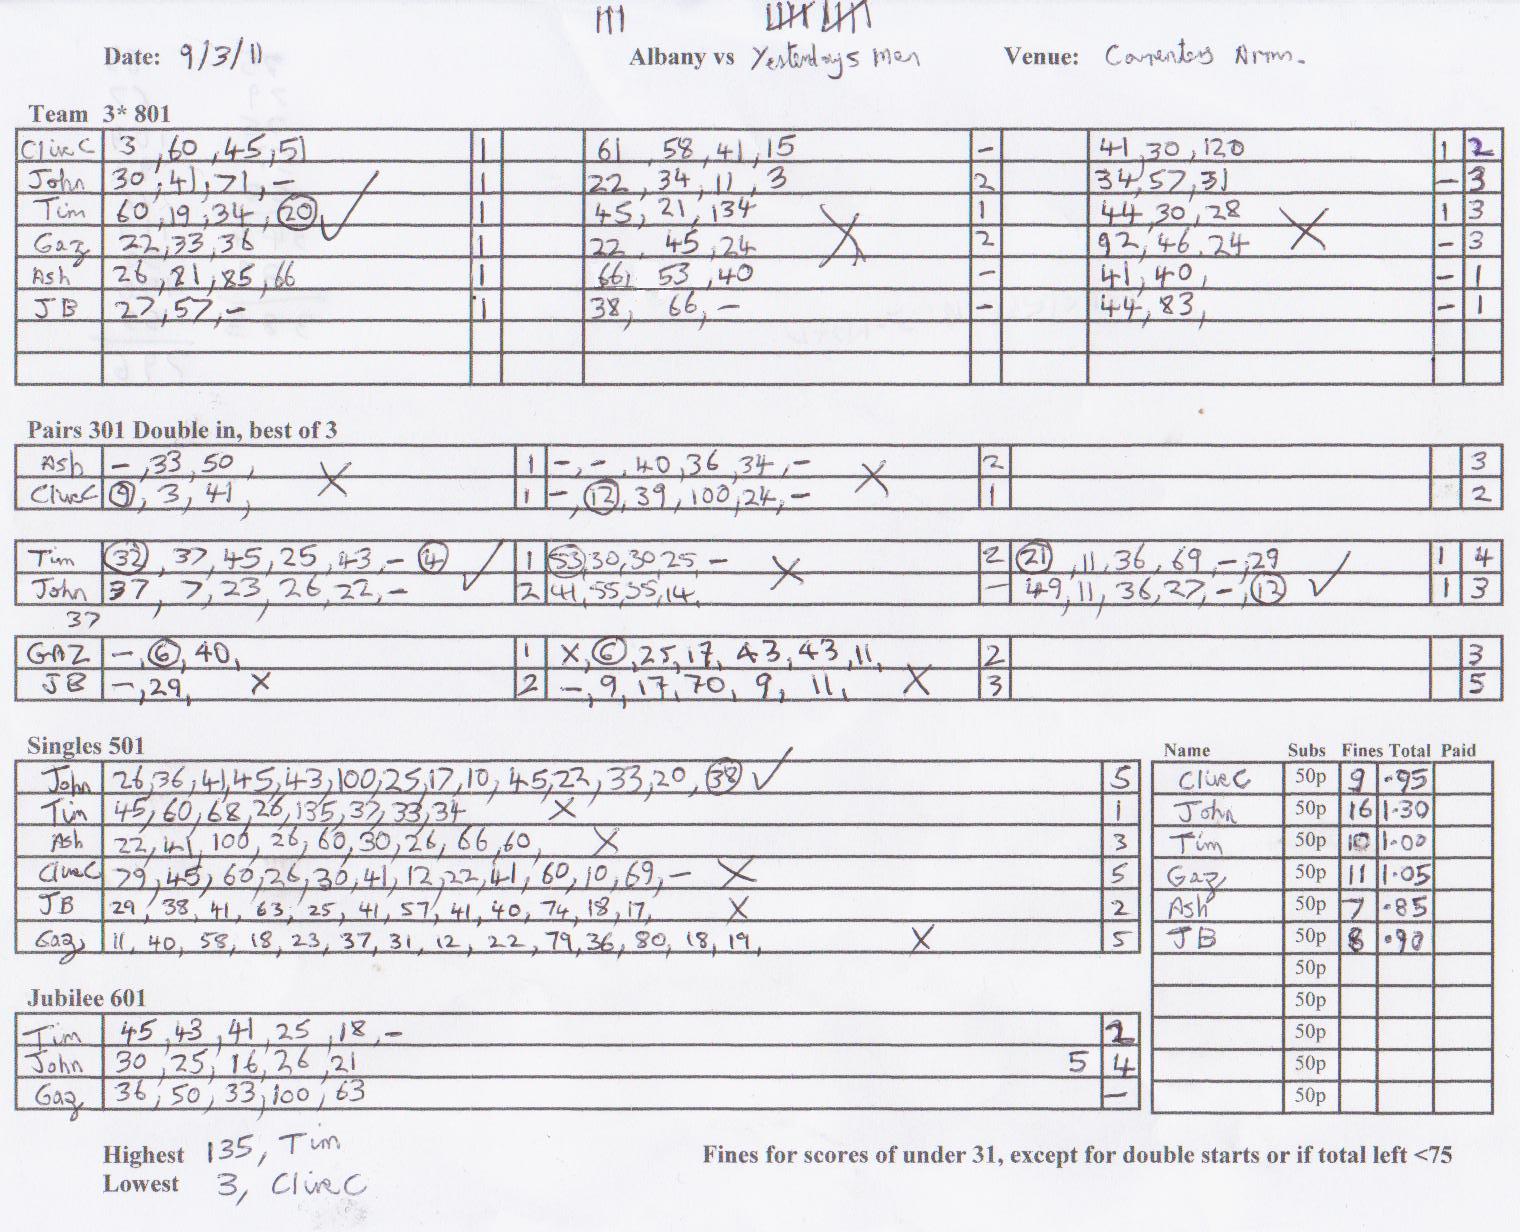 Date: 9/3/11 Albany vs Yesterdays Men Venue: Carpenters Arms.
Team 3* 801
Clive C 3, 60, 45, 51 1 61, 58, 41, 15 - 41, 30, 120 1 2
John 30, 41, 71, - 1 22, 34, 11, 3 2 34, 57, 31 - 3
Tim 60, 19, 34, 20 1 45, 21, 134 1 44, 30, 28 1 3
Gaz 22, 33, 36 1 22, 45, 24 2 92, 46, 24 - 3
Ash 26, 81, 85, 66 1 66, 53, 40 - 41, 40, - 1
JB 27, 57, - 1 38, 66, - - 44, 83, - 1
Pairs 301 Double in, best of 3
Ash -, 33, 50, X 1 -, -, 40, 36, 34, - X 2 3
Clive C 9, 3, 41, 1 -, 12, 39, 100, 24, - 1 2
Tim 32, 37, 45, 25, 43, - 4 1 53, 30, 30, 25, - X 2 21, 11, 36, 69, -, 29 1 4
John 37, 7, 23, 26, 22, - 2 41, 55, 35, 14, - 49, 11, 36, 27, -, 12 1 3
37
GAZ -, 6, 40, 1 X, 6, 25, 17, 43, 43, 11, 2 3
JB -, 29, X 2 -, 9, 17, 70, 9, 11, X 3 5
Singles 501
John 26, 36, 41, 45, 43, 100, 25, 17, 10, 45, 22, 33, 20, 38 5
Tim 45, 60, 68, 26, 135, 37, 33, 34 X 1
Ash 22, 41, 100, 26, 60, 30, 26, 66, 60, X 3
Clive C 79, 45, 60, 26, 30, 41, 12, 22, 41, 60, 10, 69, - X 5
JB 29, 38, 41, 63, 25, 41, 57, 41, 40, 74, 18, 17, X 2
Gaz 11, 40, 58, 18, 23, 37, 31, 12, 22, 79, 36, 80, 18, 19, X 5
Name Subs Fines Total Paid
Clive C 50p 9 .95
John 50p 16 1.30
Tim 50p 10 1.00
Gaz 50p 11 1.05
Ash 50p 7 .85
JB 50p 8 .90
50p
50p
50p
50p
50p
Jubilee 601
Tim 45, 43, 41, 25, 18, - 2
John 30, 25, 16, 26, 21 5 4
Gaz 36, 50, 33, 100, 63 -
Highest 135, Tim
Lowest 3, Clive C
Fines for scores of under 31, except for double starts or if total left <75